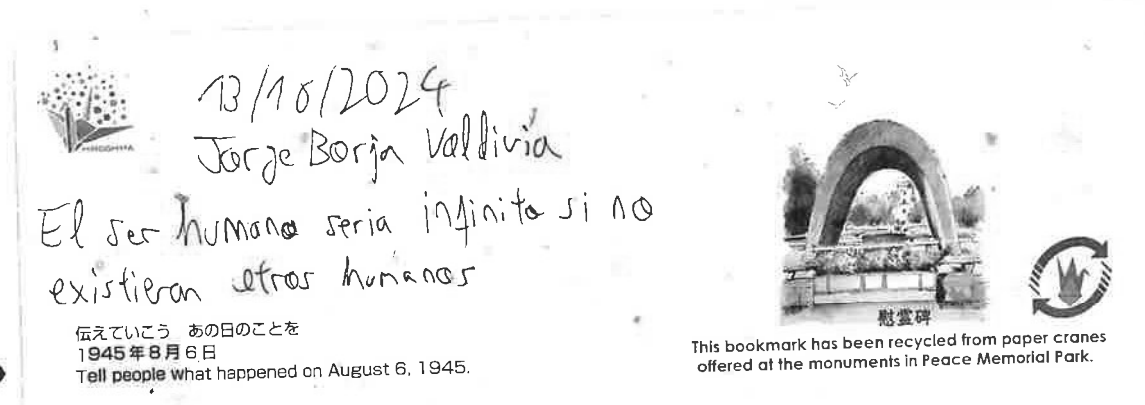 13/10/2024
Jorge Borja Valdivia
El ser humano seria infinito si no
existieran otros humanos
HIROSHIMA
伝えていこう あの日のことを
1945年8月6日
Tell people what happened on August 6, 1945.
慰霊碑
This bookmark has been recycled from paper cranes
offered at the monuments in Peace Memorial Park.